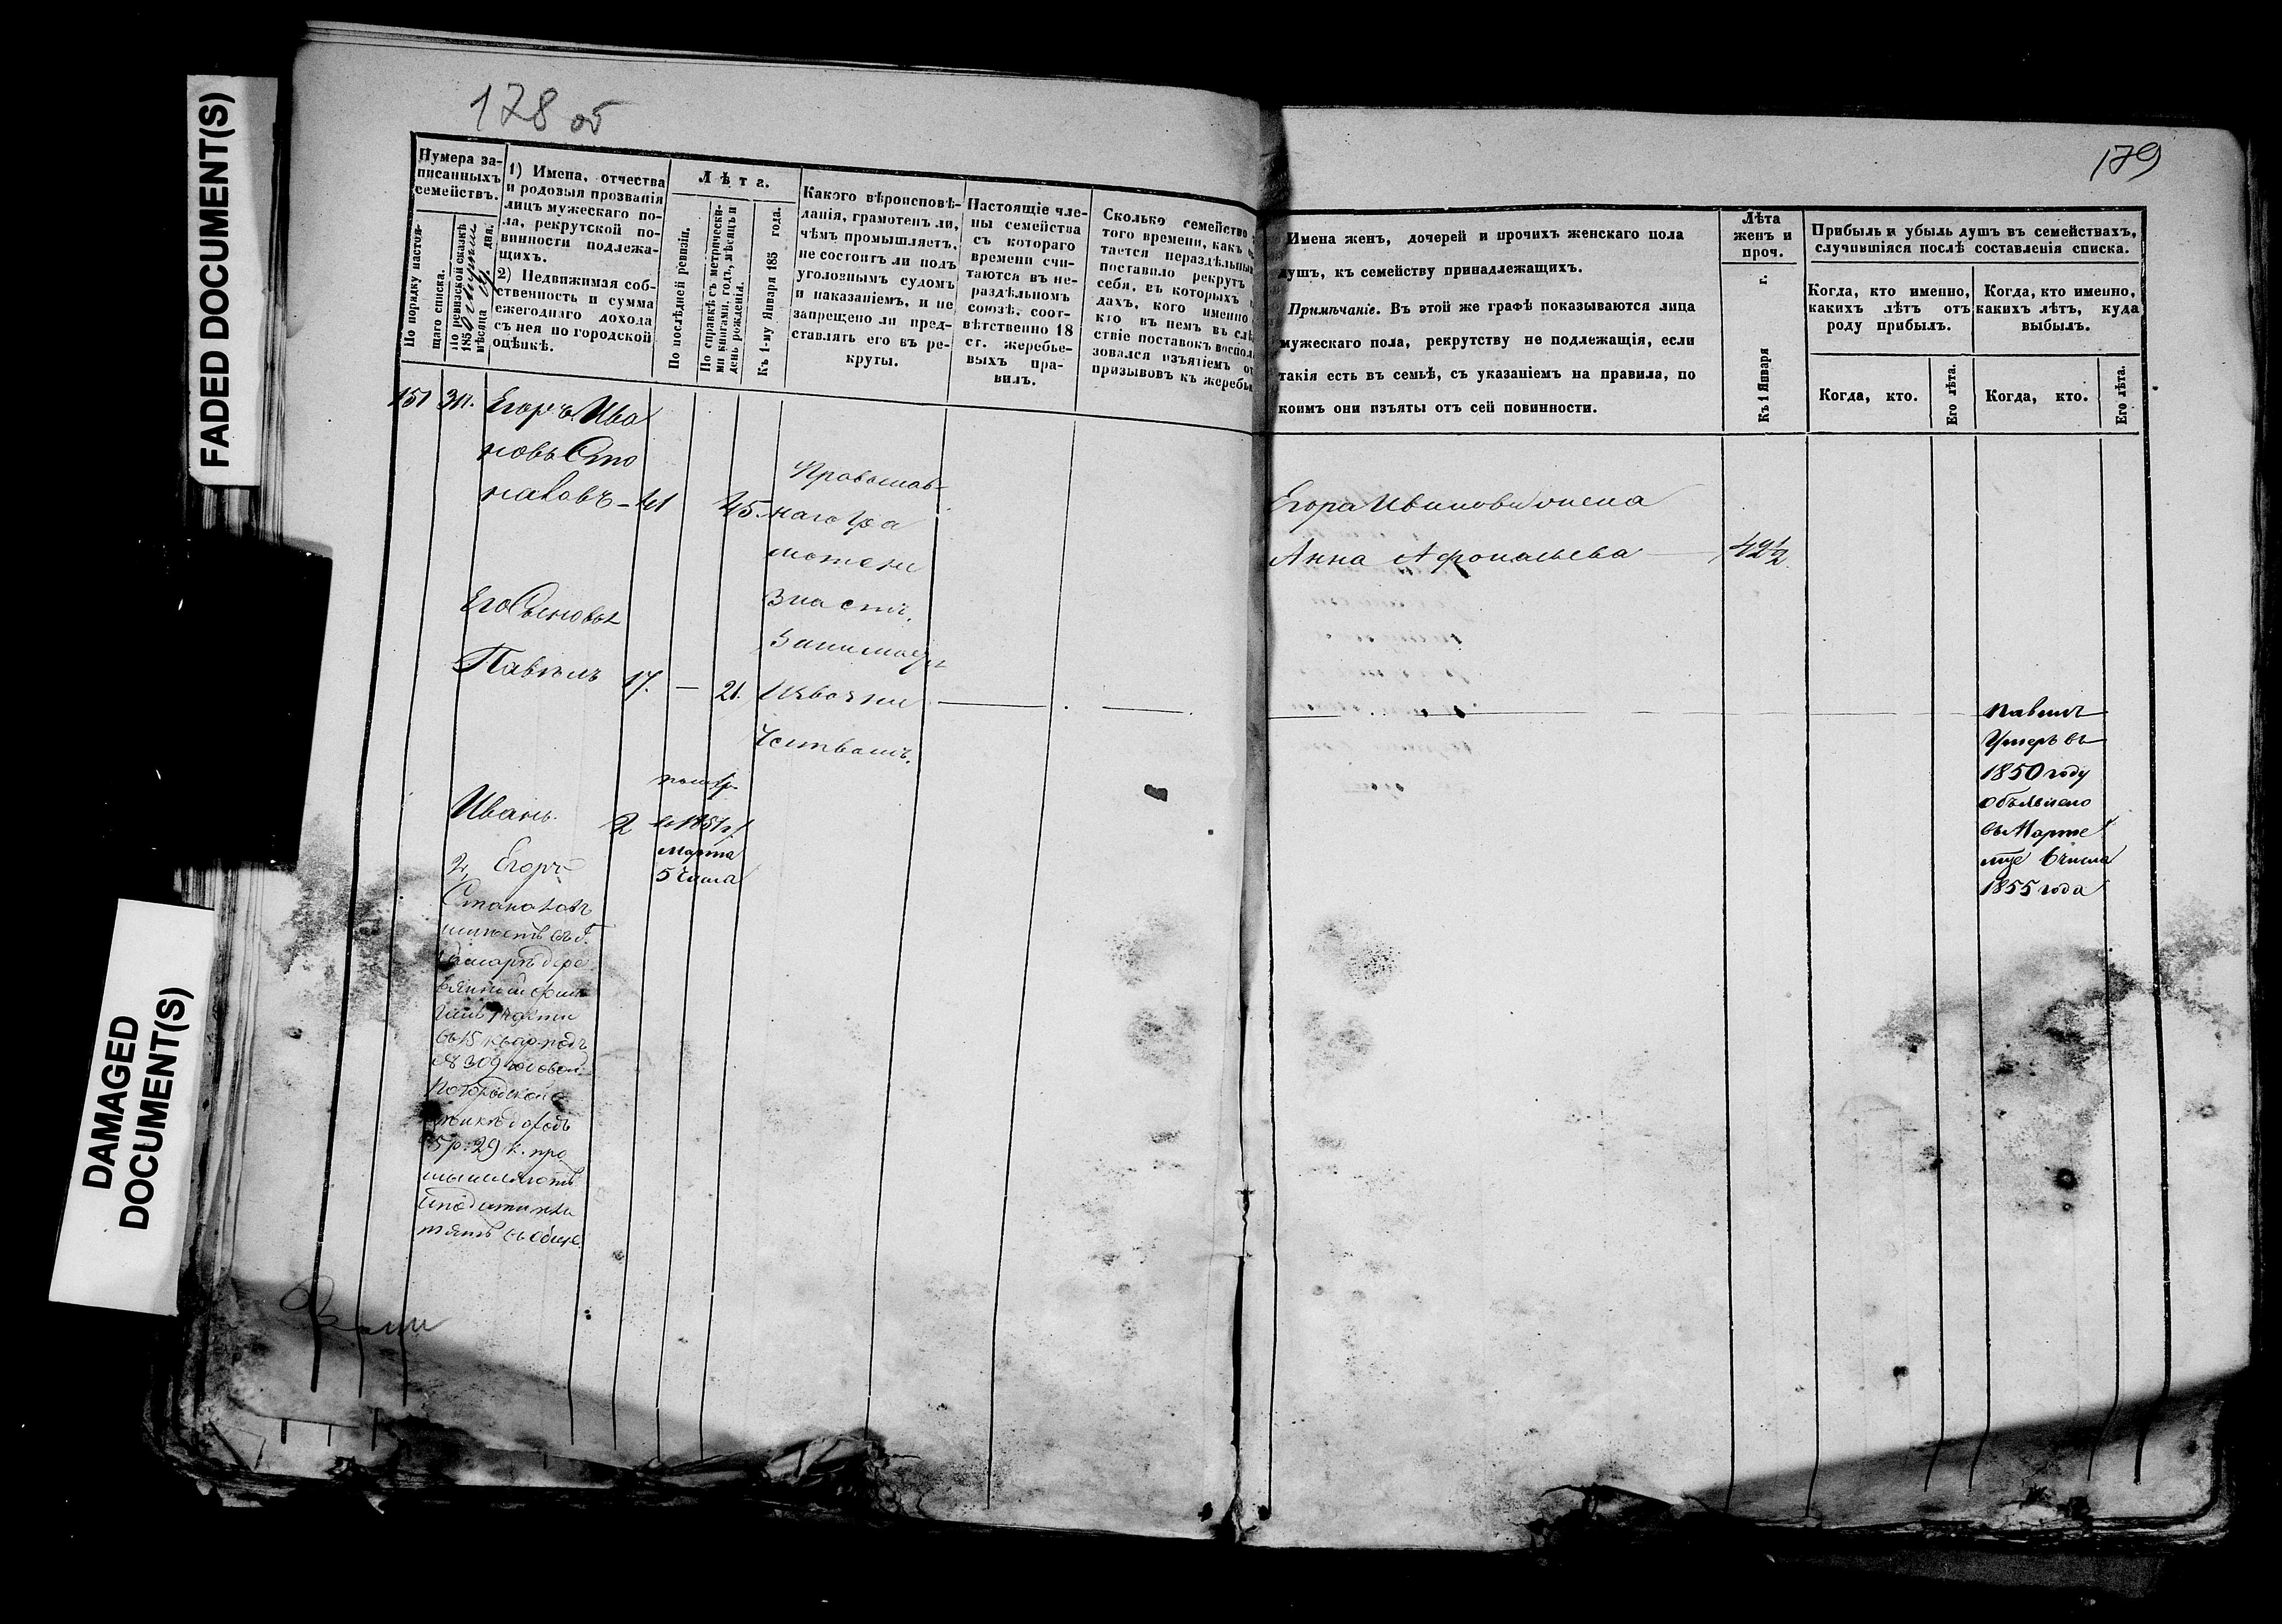 FADED DOCUMENT(S)
DAMAGED
DOCUMENT(S)
178 об
Нумера за-
писанныхъ
семействъ.
По порядку настоя-
щаго списка.
По ревизской сказкѣ
185
мѣсяца
дня.
1) Имена, отчества
и родовыя прозванія
лицъ мужескаго по-
ла, рекрутской по-
винности подлежа-
щихъ.
2) Недвижимая соб-
ственность и сумма
ежегоднаго дохода
съ нея по городской
оцѣнкѣ.
Лѣта.
По послѣдней ревизіи.
По справкѣ съ метрически-
ми книгами, годъ, мѣсяцъ и
день рожденія.
Къ 1-му Января 185 года.
Какого вѣроисповѣ-
данія, грамотенъ ли,
чѣмъ промышляетъ,
не состоитъ ли подъ
уголовнымъ судомъ
и наказаніемъ, и не
запрещено ли пред-
ставлять его въ ре-
круты.
Настоящіе чле-
ны семейства
съ котораго
времени счи-
таются въ не-
раздѣльномъ
союзѣ, соот-
вѣтственно 18
ст. жеребье-
выхъ пра-
вилъ.
Сколько семейство
того времени, какъ
тается нераздѣльнымъ
поставило рекрутъ
себя, въ которыхъ
дахъ, кого именно
кто въ немъ въ слѣд
ствіе поставокъ воспол
зовался изъятіемъ от
призывовъ къ жеребью
151 311. Егоръ Ива
новъ Ста
наковъ - 41 45.
Православ-
наго Гра
мотен
Знаетъ.
Занимается
Извозни
чествомъ.
Его Сыновья
Павелъ 17. — 21.
Иванъ 2
в 1851 г.
Марта
5 Числа
2, Егоръ
Станаковъ
имѣетъ въ г.
Самарѣ дере
вянный
въ 15 квар. подъ
№ 309 годовой
по городской о
цѣнкѣ доходъ
5 р: 29 к. про
179
Имена женъ, дочерей и прочихъ женскаго пола
душъ, къ семейству принадлежащихъ.
Примѣчаніе. Въ этой же графѣ показываются лица
мужескаго пола, рекрутству не подлежащія, если
такія есть въ семьѣ, съ указаніемъ на правила, по
коимъ они изъяты отъ сей повинности.
Лѣта
женъ и
проч.
Къ 1 Января г.
Прибыль и убыль душъ въ семействахъ,
случившіяся послѣ составленія списка.
Когда, кто именно,
какихъ лѣтъ отъ
роду прибылъ.
Когда, кто именно,
какихъ лѣтъ, куда
выбылъ.
Когда, кто.
Его лѣта.
Когда, кто.
Его лѣта.
Егора Иванова жена
Анна Афонасьева — 42½
Павелъ
Умеръ въ
1850 году
Объявлено
въ Марте
мце 6 числа
1855 года